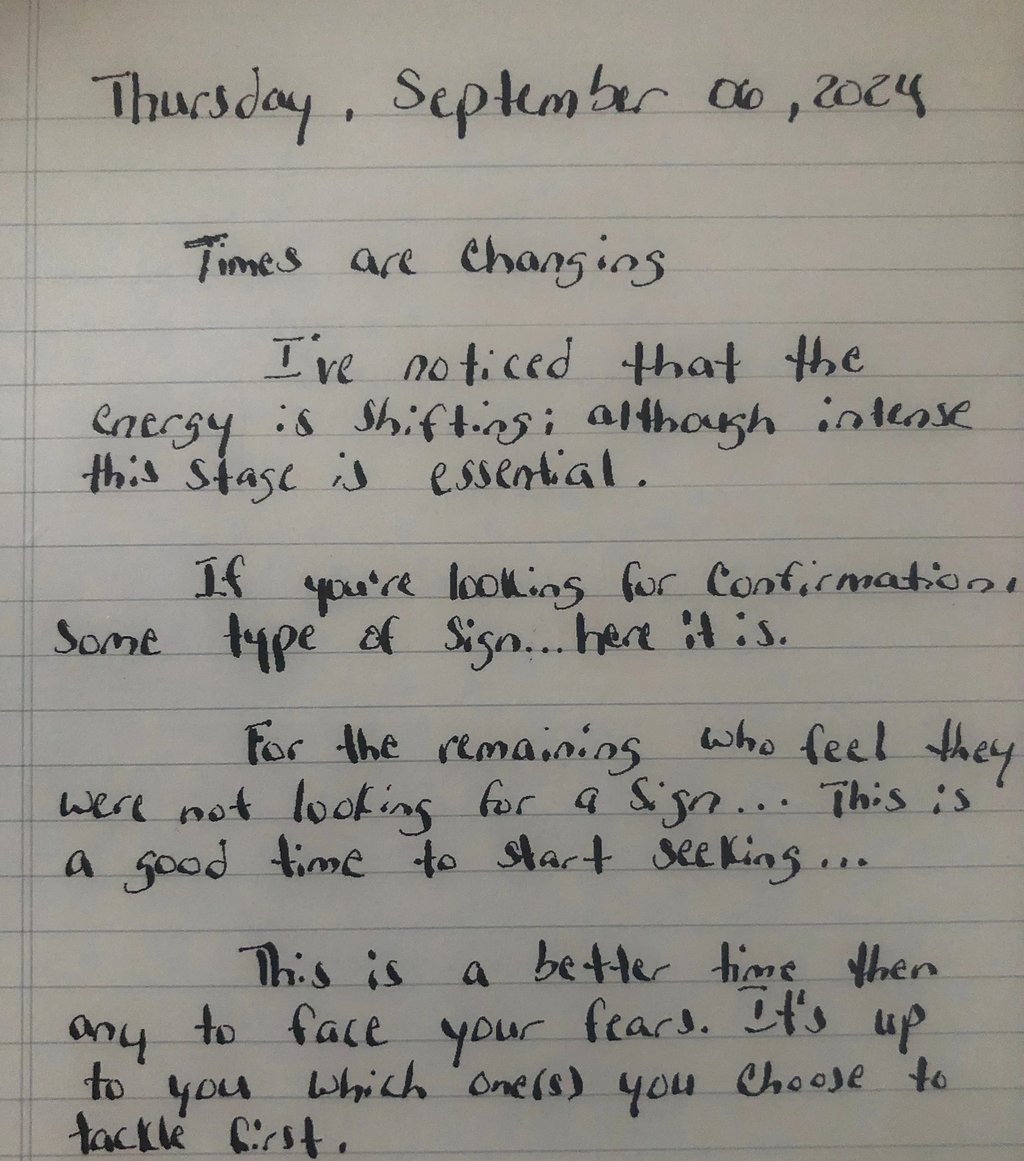 Thursday, September 06, 2024
Times are Changing
I've noticed that the
energy is shifting; although intense
this stage is essential.
If you're looking for Confirmation.
Some type of Sign... here it is.
For the remaining who feel they
were not looking for a Sign... This is
a good time to start seeking...
This is a better time then
any to face your fears. It's up
to you which one(s) you choose to
tackle first.